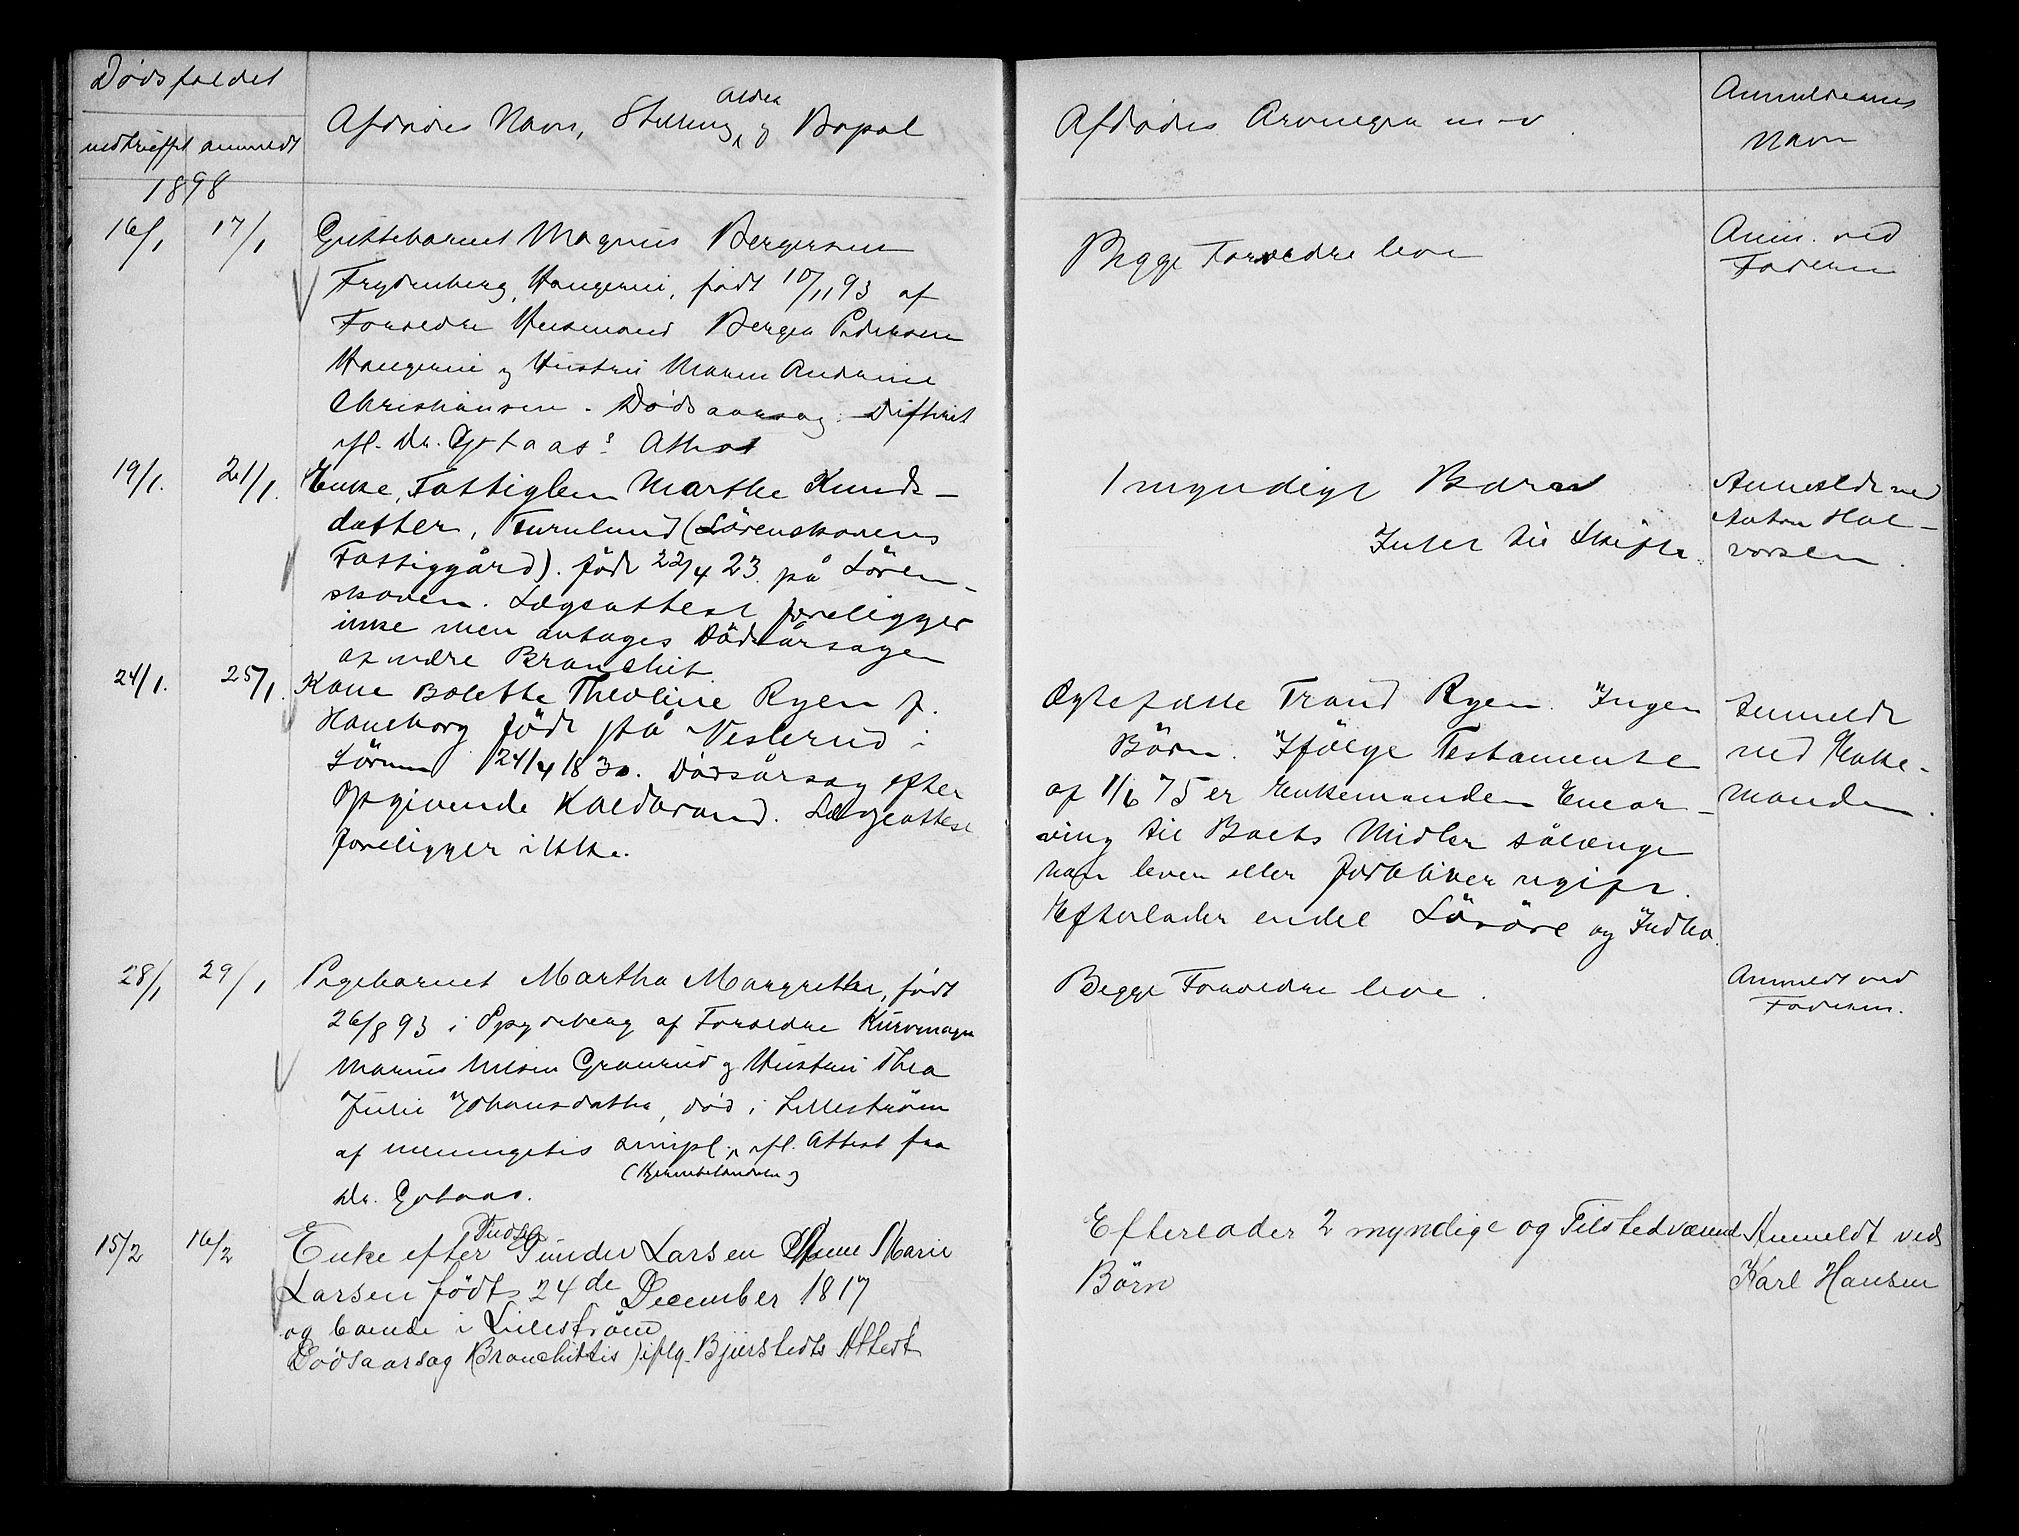 Dødsfaldet
indtruffet anmeldt
Afdødes Navn, Stilling, Alder og Bopæl
1898
16/1 17/1 Guttebarnet Magnus Bergersen
Frydenberg, Haugerni, født 10/11 93 af
Forældre Husmand Berger Pedersen
Haugerni og Hustru Maren Andrine
Christiansen. Dødsaarsag: Difterit
ifl. Dr. Gotaas' Attest
19/1. 21/1. Enke, Fattiglem Marthe Knuds-
datter, Furulund (Lörenskovens
Fattiggård). födt 22/4 23. på Lören-
skoven. Lægeattest foreligger
ikke men antages Dödsårsagen
at være Bronchit.
24/1. 25/1. Kone Bolette Theoline Ryen f.
Haneborg födt på Veslerud i
Sörum 24/4 1830. Dödsårsag efter
Opgivende Koldbrand. Lægeattest
foreligger ikke.
28/1 29/1 Pigebarnet Martha Margrethe, født
26/8 93 i Spydeberg af Forældre Kurvmager
Marius Nilsen Granrud og Hustru Thea
Julie Johansdatter, død i Lillestrøm
af meningitis simpl., ifl. Attest fra
(Hjernebetændelse)
Dr. Gotaas.
15/2 16/2 Enke efter Gunder Larsen Anne Marie
Larsen født 24de December 1817
og boende i Lillestrøm
Dødsaarsag (Bronchittis) iflg. Bjerstedts Attest
Afdødes Arvinger m.v.
Anmeldernes
Navn
Begge Forældre leve
Anm. ved
Faderen
1 myndigt Barn
Intet til Skifte.
Anmeldt ved
Anton Hal-
vorsen.
Ægtefælle Trond Ryen. Ingen
Börn. Ifölge Testamente
af 1/6 75 er Enkemanden Enear-
ving til Boets Midler sålænge
han lever eller forbliver ugift.
Efterlader endel Lösöre og Indbo.
Anmeldt
ved Enke-
manden.
Begge Forældre leve.
Anmeldt ved
Faderen.
Efterlader 2 myndige og Tilstedværend
Börn
Anmeldt ved
Karl Hansen